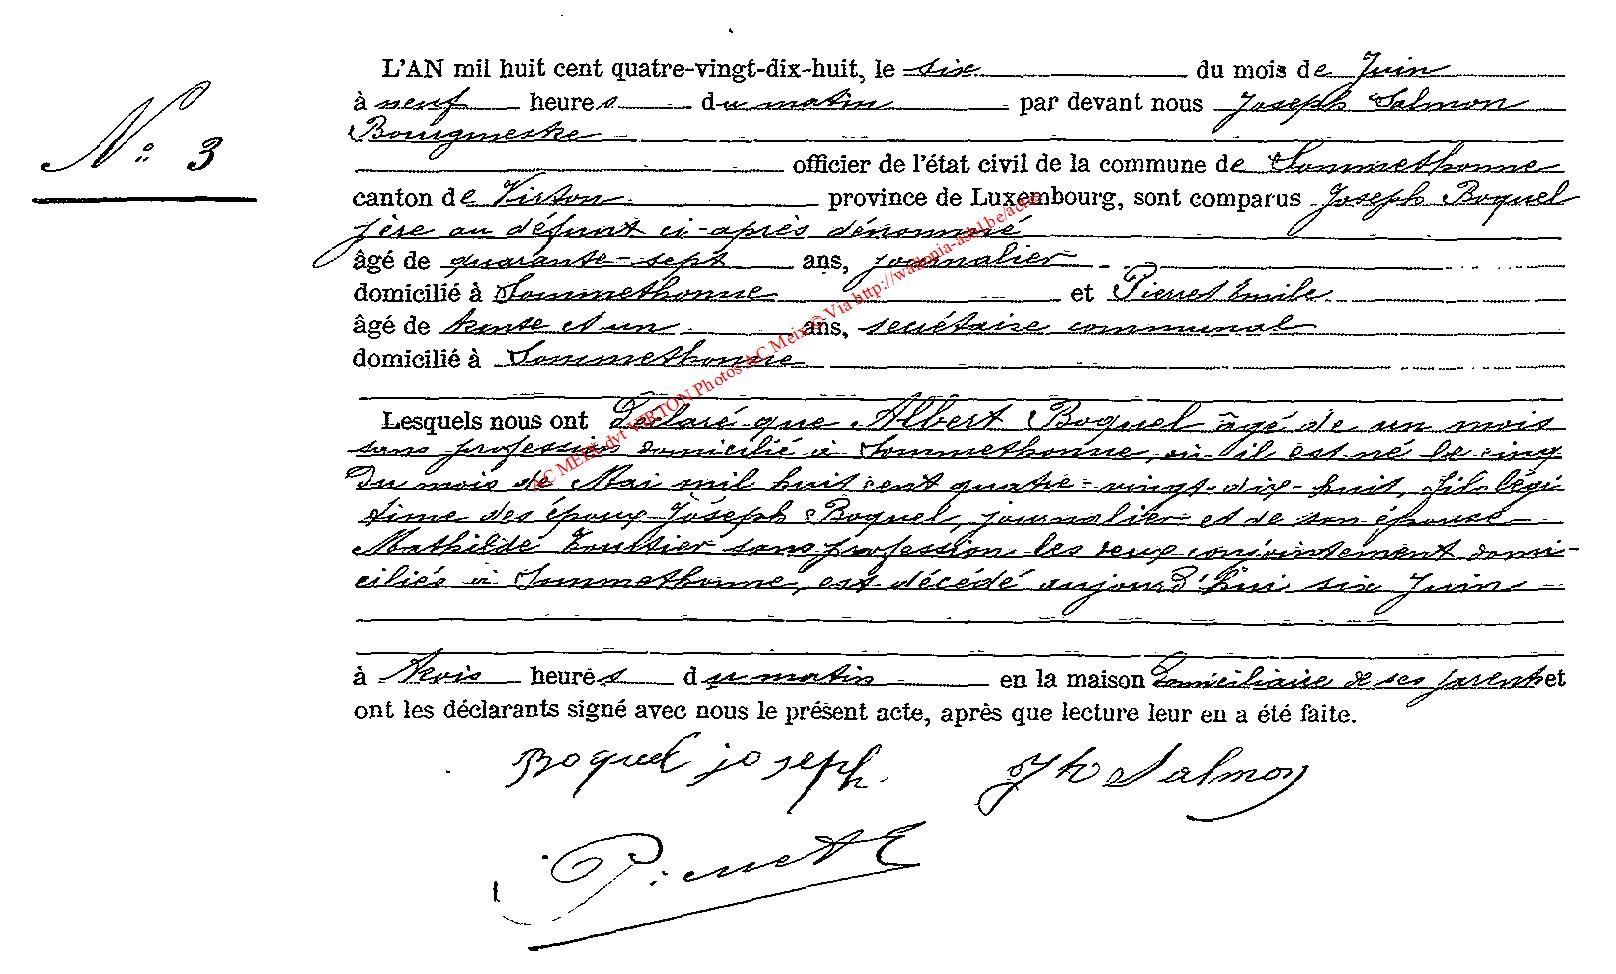 L'AN mil huit cent quatre-vingt-dix-huit, le six du mois de Juin
N° 3
à neuf heures du matin par devant nous Joseph Salmon
Bourgmestre
officier de l'état civil de la commune de Sommethonne
canton de Virton province de Luxembourg, sont comparus Joseph Boquel
père au défunt ci-après dénommé
âgé de quarante-sept ans, journalier
domicilié à Sommethonne et Pierret Emile
âgé de trente et un ans, secrétaire communal
domicilié à Sommethonne
Lesquels nous ont Déclaré que Albert Boquel âgé de un mois
sans profession domicilié à Sommethonne, où il est né le cinq
du mois de Mai mil huit cent quatre-vingt-dix-huit, fils légi
time des époux Joseph Boquel, journalier et de son épouse
Mathilde sans profession les deux conjointement domi-
ciliés à Sommethonne, est décédé aujourd'hui six Juin
à trois heures du matin en la maison domiciliaire de ses parents et
ont les déclarants signé avec nous le présent acte, après que lecture leur en a été faite.
Boquel joseph. Jh Salmon
Pierret E
AC MEIX dvt VIRTON Photos AC Meix © Via http://wallonia-asbl.be/actes